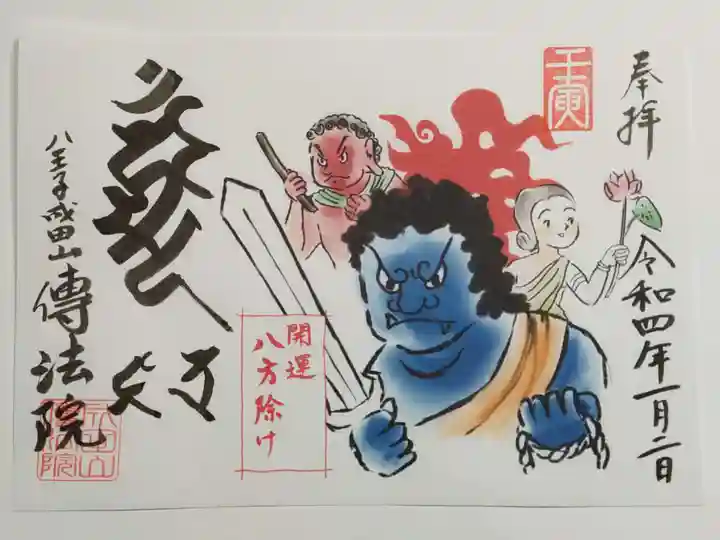 奉拝
令和四年一月二日
壬寅
開運
八方除け
八王子成田山
傳法院